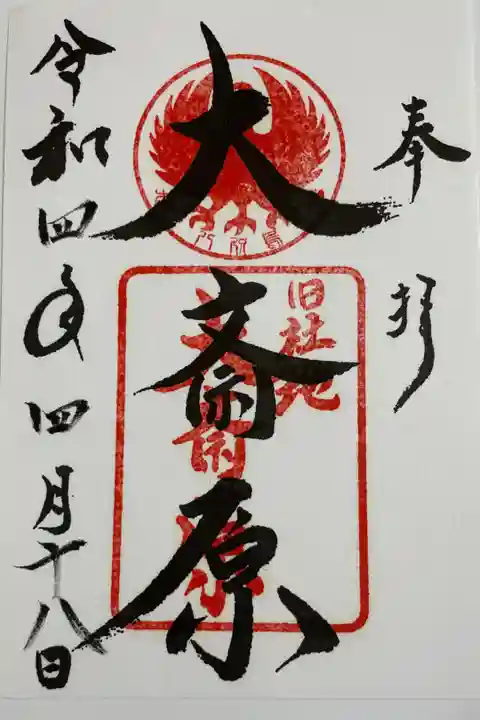 奉拝
旧社地
大斎原
大斎原
令和四年四月十八日